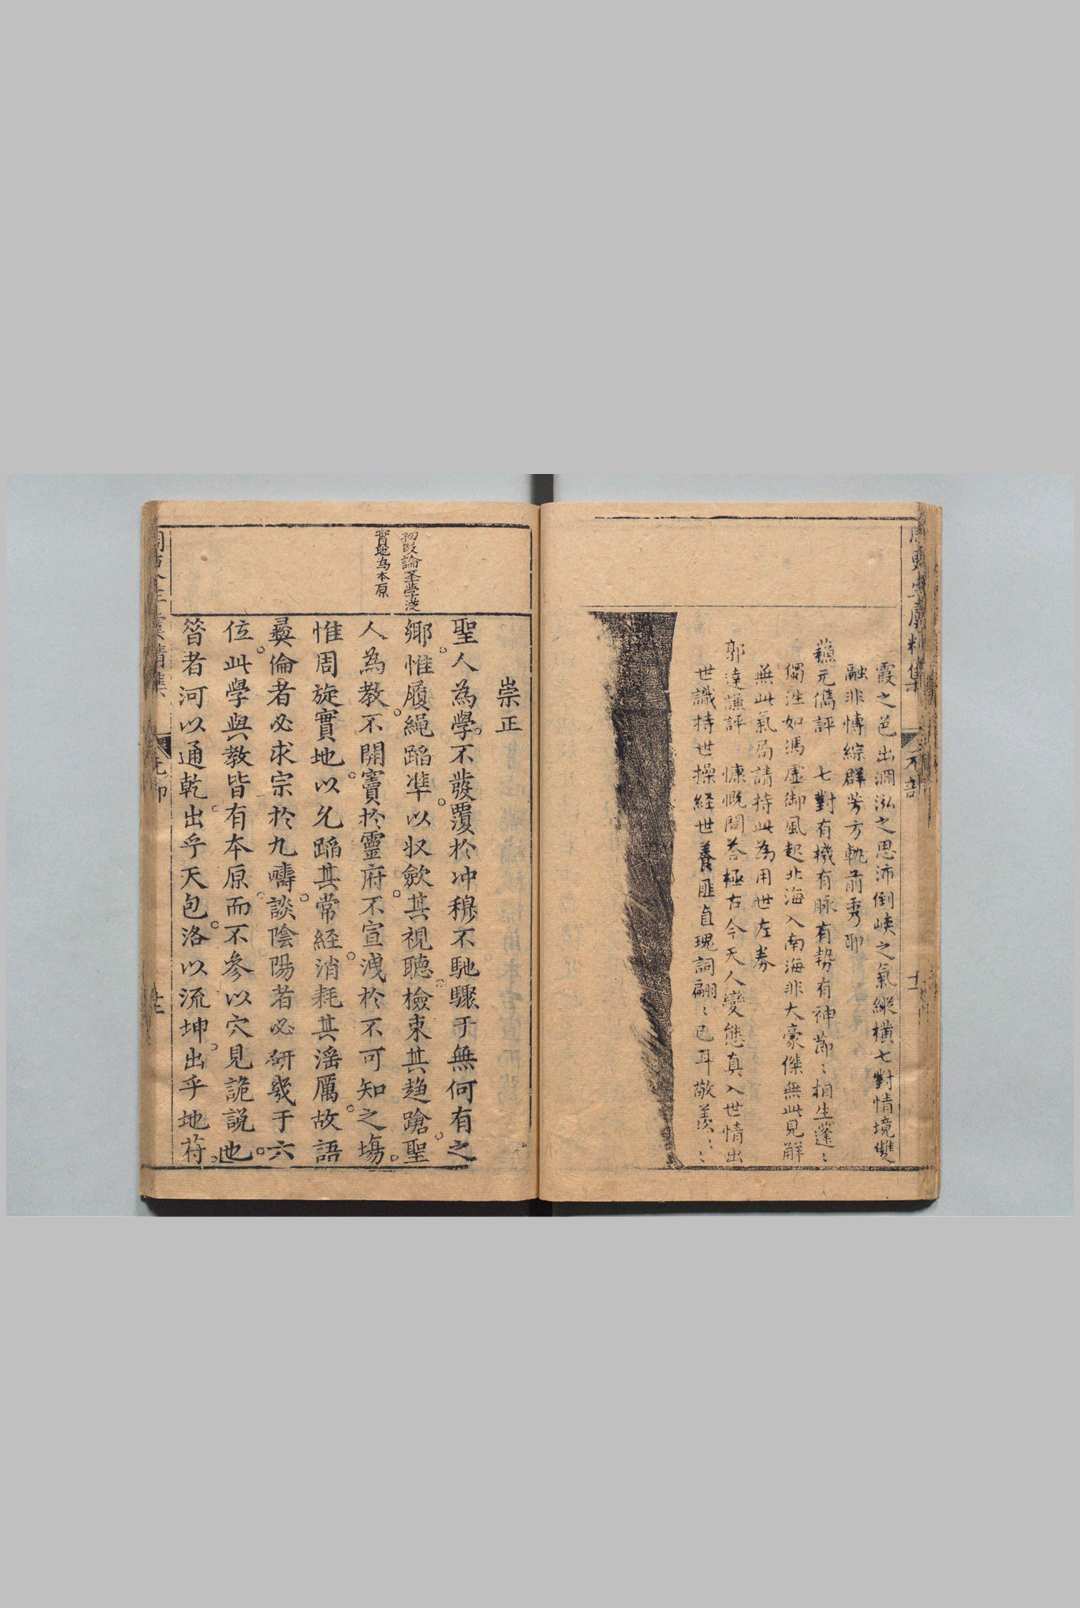 霞之邑出涸泓之思沛倒峽之氣縱橫七對情境雙
融非博綜群芳方軌前秀耶
蘓元儁評　七對有機有脉有勢有神節〻相生蓬〻
獨往如馮虛御風起北海入南海非大豪傑無此見解
無此氣局請持此為用世左券
郭達謙評　慷慨問荅極古今天人變態真入世情出
世識持世操経世養匪直瑰詞翩〻已耳敬羡〻〻
崇正
初段論圣學從
實地為本原
聖人為學不蔆覆於冲穆不馳驟于無何有之
鄉惟履繩蹈準以收斂其視聽檢束其趋蹌聖
人為教不開竇於靈府不宣洩於不可知之場
惟周旋實地以允蹈其常経消耗其滛厲故語
彛倫者必求宗於九疇談陰陽者必研㡬于六
位此學與教皆有本原而不參以穴見詭説也
昝者河以通乾出乎天包洛以流坤出乎地苻